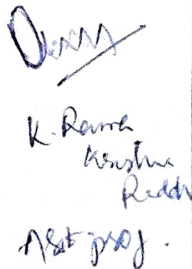 K. Rama
Krishna
Reddy
Asst prof.